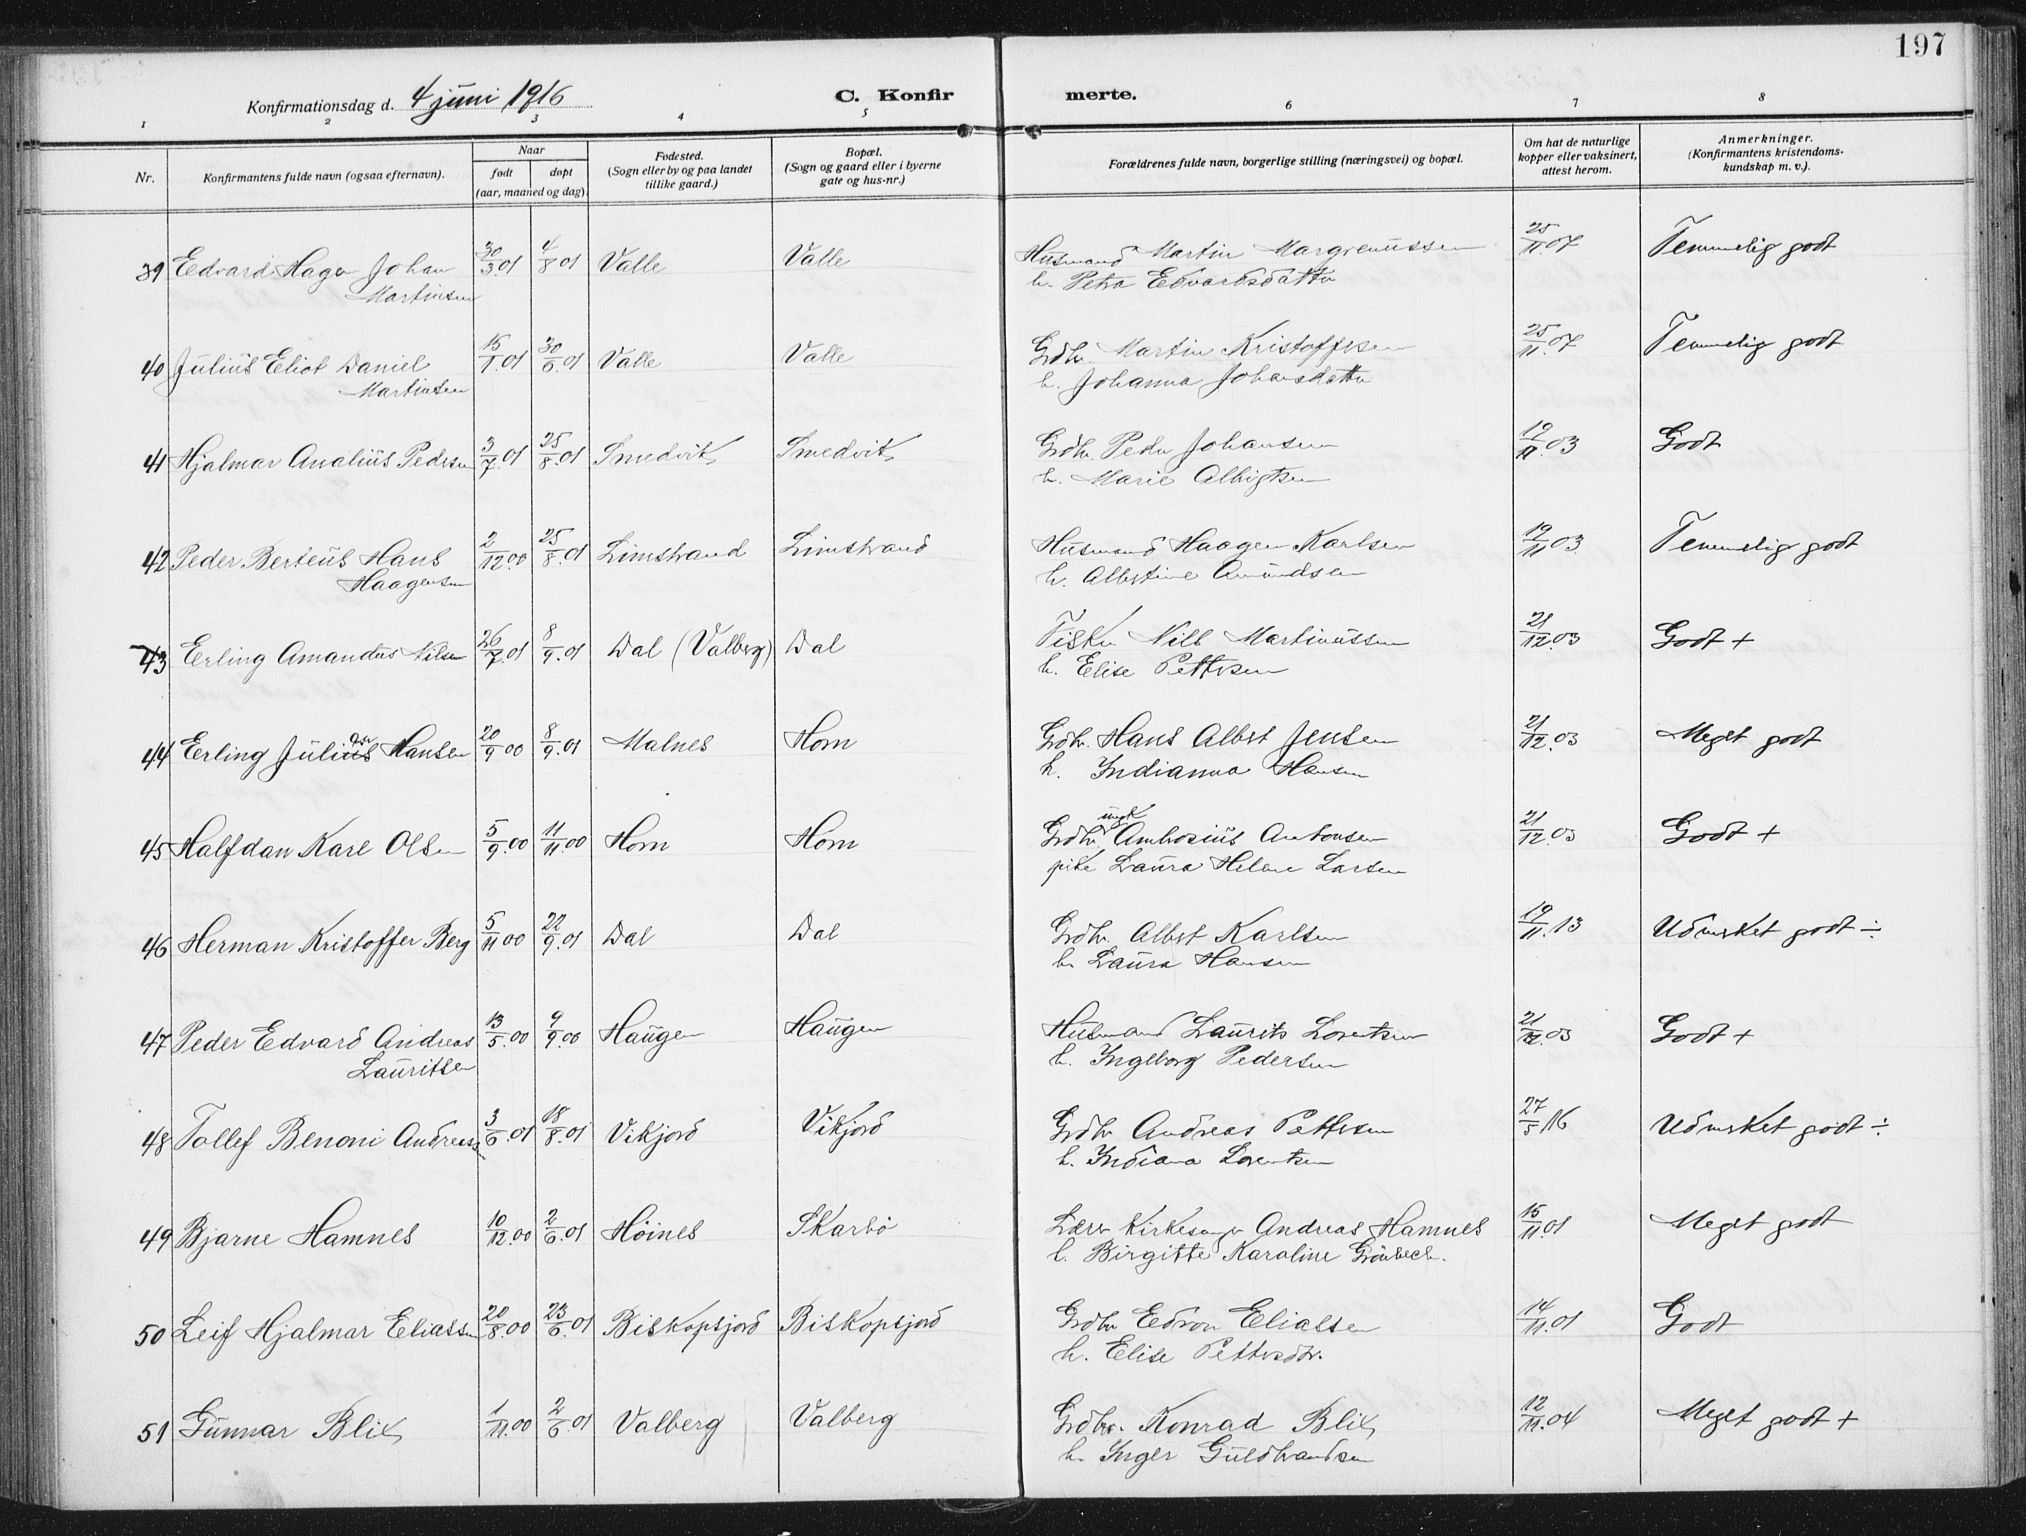 197
Konfirmationsdag d. 4 juni 1916 C. Konfirmerte.
1 2 3 4 5 6 7 8
Nr. Konfirmantens fulde navn (ogsaa efternavn). Naar født døpt (aar, maaned og dag). Fødested. (Sogn eller by og paa landet tillike gaard.) Bopæl. (Sogn og gaard eller i byerne gate og hus-nr.) Forældrenes fulde navn, borgerlige stilling (næringsvei) og bopæl. Om hat de naturlige kopper eller vaksinert, attest herom. Anmerkninger. (Konfirmantens kristendoms-kundskap m. v.).
39 Edvard Hagen Johan 30/3 01 4/8 01 Valle Valle Husmand Martin Margrenussen 25/11 07 Temmelig godt
Martinsen h. Petra Edvardsdatter
40 Julius Eliot Daniel 15/1 01 30/6 01 Valle Valle Grdbr. Martin Kristoffersen 25/11 07 Temmelig godt
Martinsen h. Johanna Johansdatter
41 Hjalmar Analius Pedersen 3/7 01 25/8 01 Smedvik Smedvik Grdbr. Peder Johansen 19/11 03 Godt
h. Marie Albrigtsen
42 Peder Berteus Hans 2/12 00 25/8 01 Limstrand Limstrand Husmand Haagen Karlsen 19/11 03 Temmelig godt
Haagensen h. Albertine Amundsen
43 Erling Amandus Nilsen 26/7 01 8/9 01 Dal (Valberg) Dal Fisker Nils Martinussen 21/12 03 Godt +
h. Elise Pettersen
44 Erling Julius Hansen 20/9 00 8/9 01 Malnes Horn Grdbr. Hans Albert Jensen 21/12 03 Meget godt
h. Indianna Hansen
45 Halfdan Karl Olsen 5/9 00 11/11 00 Horn Horn Grdbr. ungk Ambrosius Antonsen 21/12 03 Godt +
pike Laura Helene Larsen
46 Herman Kristoffer Berg 5/11 00 22/9 01 Dal Dal Grdbr. Albert Karlsen 19/11 13 Udmerket godt ÷
h. Laura Hansen
47 Peder Edvard Andreas 13/5 00 9/9 00 Haugen Haugen Husmand Laurits Lorentsen 21/12 03 Godt +
Lauritsen h. Ingeborg Pedersen
48 Tollef Benoni Andreassen 3/6 01 18/8 01 Vikjord Vikjord Grdbr. Andreas Pettersen 27/5 16 Udmerket godt ÷
h. Indiana Lorentsen
49 Bjarne Hamnes 10/12 00 2/6 01 Høines Skarbø Lærer Kirkesanger Andreas Hamnes 15/11 01 Meget godt
h. Birgitte Karoline Grönbech.
50 Leif Hjalmar Eliassen 20/8 00 23/6 01 Biskopsjord Biskopsjord Grdbr. Edvon Eliassen 14/11 01 Godt
h. Elise Pettersdtr.
51 Gunnar Blix 1/11 00 2/6 01 Valberg Valberg Grdbr. Konrad Blix 12/11 04 Meget godt +
h. Inger Guldbrandsen